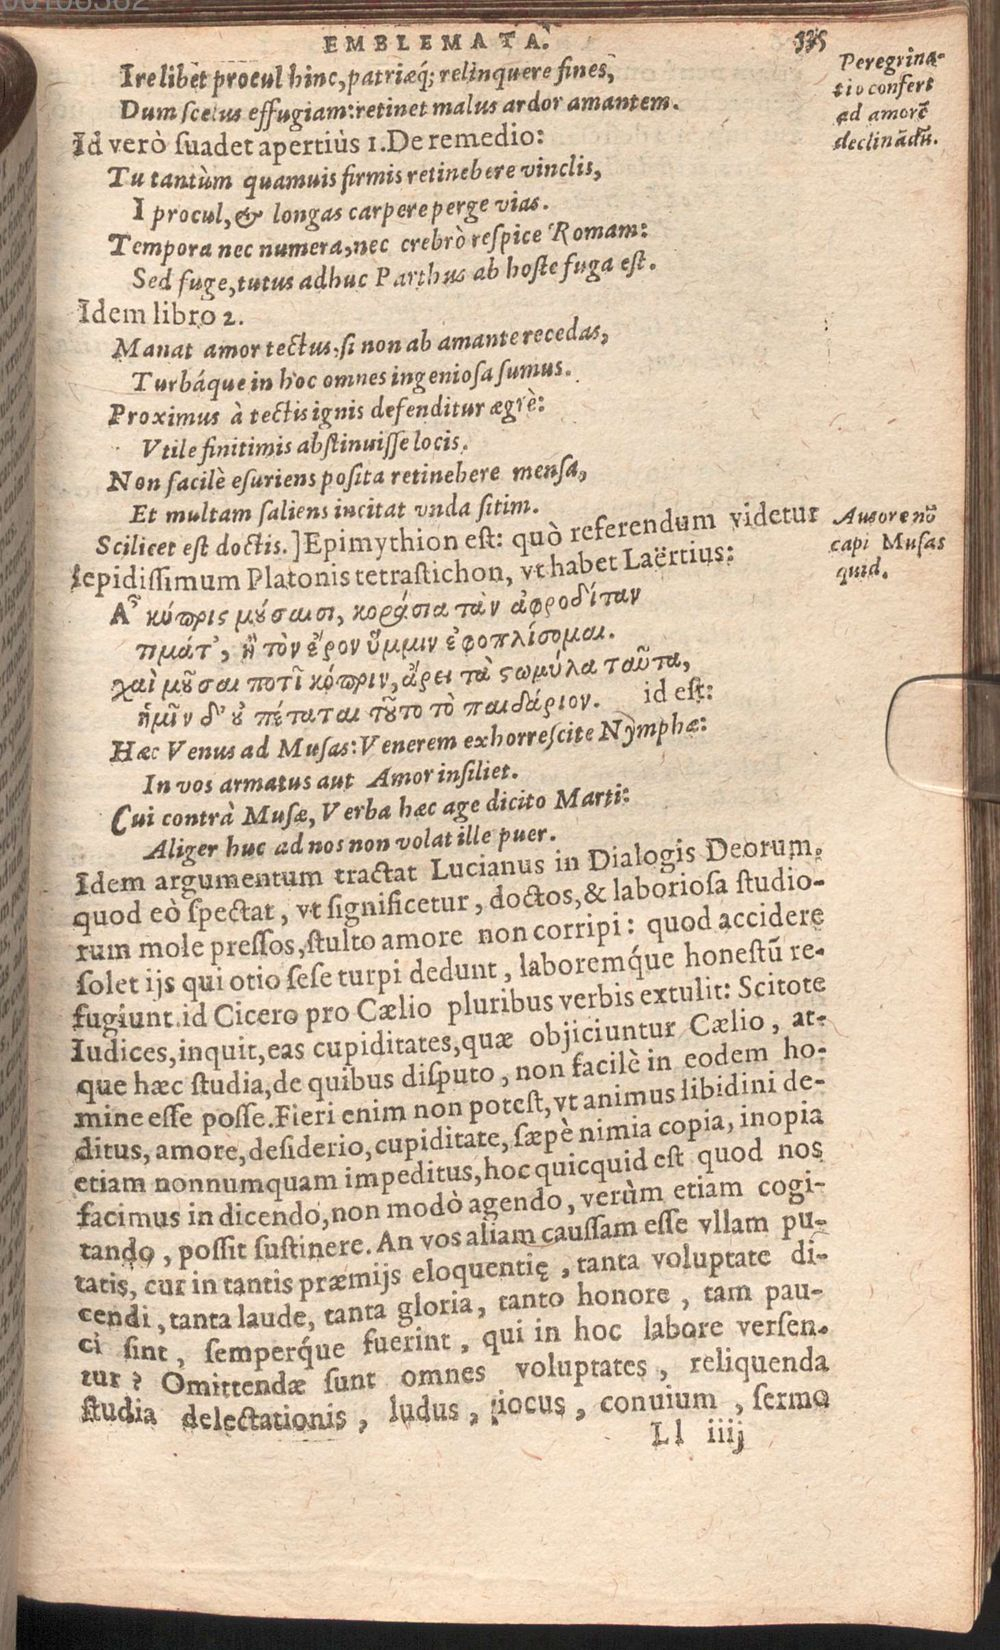 EMBLEMATA. 535
Ire libet procul hinc, patriæq́; relinquere fines,
Dum scelus effugiam: retinet malus ardor amantem.
Peregrina-
tio confert
ad amorẽ
declinãdũ.
Id verò suadet apertiùs 1. De remedio:
Tu tantùm quamuis firmis retinebere vinclis,
I procul, & longas carpere perge vias.
Tempora nec numera, nec crebrò respice Romam:
Sed fuge, tutus adhuc Parthus ab hoste fuga est.
Idem libro 2.
Manat amor tectus, si non ab amante recedas,
Turbáque in hoc omnes ingeniosa sumus.
Proximus à tectis ignis defenditur ægrè:
Vtile finitimis abstinuisse locis.
Non facilè esuriens posita retinebere mensa,
Et multam saliens incitat vnda sitim.
Scilicet est doctis.] Epimythion est: quò referendum videtur
lepidissimum Platonis tetrastichon, vt habet Laërtius:
Amore nõ
capi Musas
quid.
Ἀ κύπρις μούσαισι, κοράσια τὰν ἀφροδίταν
τιμάτ', ἢ τὸν ἔρον ὔμμιν ἐφοπλίσομαι.
χαὶ μοῦσαι ποτὶ κύπριν, ἄρει τὰ στωμύλα ταῦτα,
ἡμῖν δ' οὐ πέταται τοῦτο τὸ παιδάριον. id est:
Hæc Venus ad Musas: Venerem exhorrescite Nymphæ:
In vos armatus aut Amor insiliet.
Cui contrà Musæ, Verba hæc age dicito Marti:
Aliger huc ad nos non volat ille puer.
Idem argumentum tractat Lucianus in Dialogis Deorum,
quod eò spectat, vt significetur, doctos, & laboriosa studio-
rum mole pressos, stulto amore non corripi: quod accidere
solet ijs qui otio sese turpi dedunt, laboremq́ue honestũ re-
fugiunt. id Cicero pro Cælio pluribus verbis extulit: Scitote
Iudices, inquit, eas cupiditates, quæ objiciuntur Cælio, at-
que hæc studia, de quibus disputo, non facilè in eodem ho-
mine esse posse. Fieri enim non potest, vt animus libidini de-
ditus, amore, desiderio, cupiditate, sæpè nimia copia, inopia
etiam nonnumquam impeditus, hoc quicquid est quod nos
facimus in dicendo, non modò agendo, verùm etiam cogi-
tando, possit sustinere. An vos aliam caussam esse vllam pu-
tatis, cur in tantis præmijs eloquentię, tanta voluptate di-
cendi, tanta laude, tanta gloria, tanto honore, tam pau-
ci sint, semperq́ue fuerint, qui in hoc labore versen-
tur? Omittendæ sunt omnes voluptates, reliquenda
studia delectationis, ludus, iocus, conuium, sermo
Ll iiij